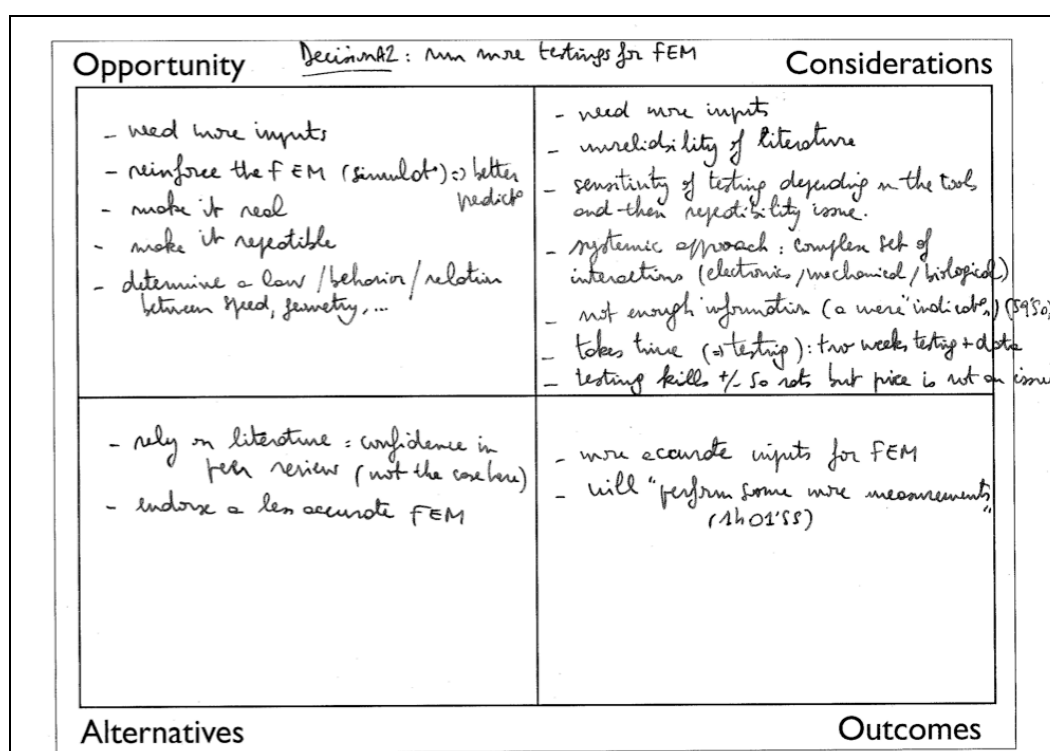 Opportunity
Decision A2 : run more testings for FEM
Considerations
- need more inputs
- reinforce the FEM (simulat°) => better
predict°
- make it real
- make it repetible
- determine a law / behavior / relation
between speed, geometry, ...
- need more inputs
- unreliability of literature
- sensitivity of testing depending on the tools
and then repetibility issue.
- systemic approach : complex set of
interactions (electronics / mechanical / biological)
- not enough information (a mere "indicat°") (59'50)
- takes time (=> testing) : two weeks testing + data
- testing kills +/- 50 rats but price is not an issue
- rely on literature = confidence in
peer review (not the case here)
- endorse a less accurate FEM
- more accurate inputs for FEM
- will "perform some more measurements"
(1h01'55)
Alternatives
Outcomes